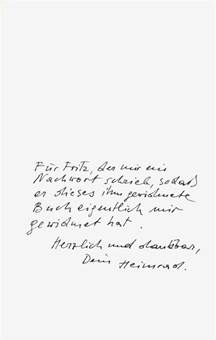 Für Fritz, der mir ein
Nachwort schrieb, sodaß
er dieses ihm gewidmete
Buch eigentlich mir
gewidmet hat.
Herzlich und dankbar,
Dein Heimrad.